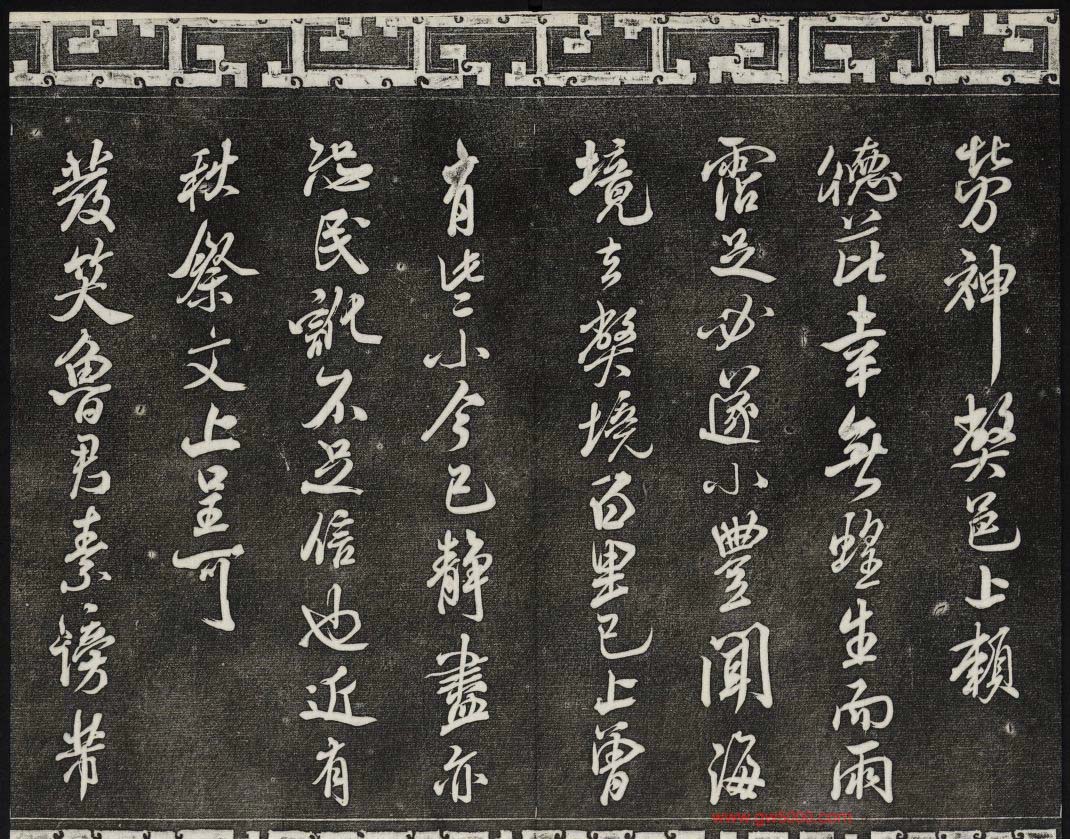 勞神獘邑上賴
德芘幸無蝗生而雨
霑足必遂小豐聞海
境去獘境百里已上曾
有些小今已靜盡亦
恐民訛不足信也近有
秋祭文上呈可
發笑魯君素謗芾